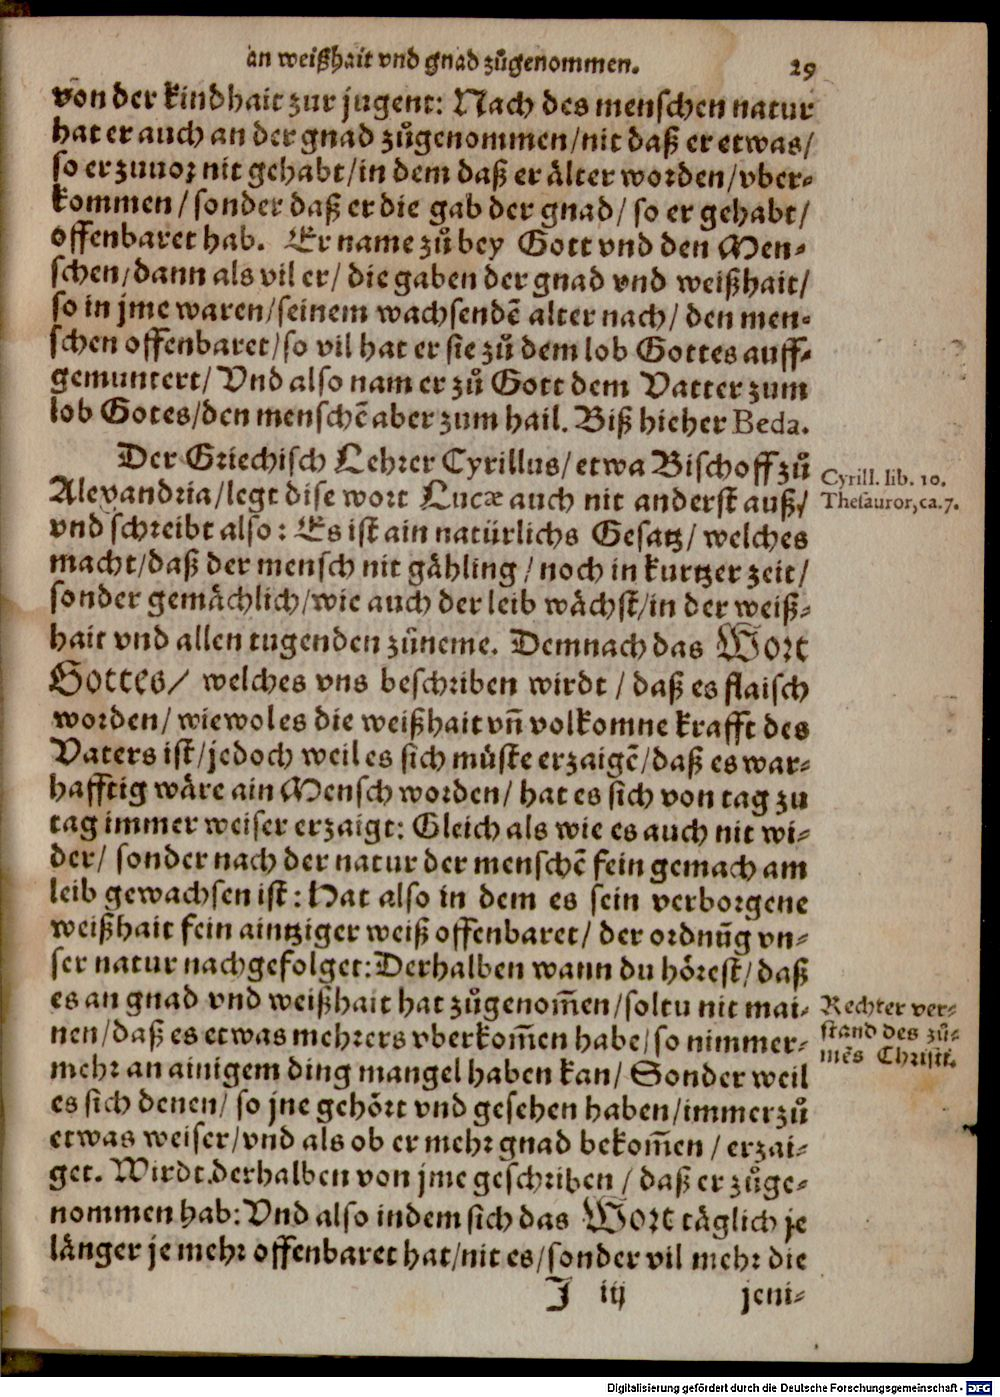 an weißhait vnd gnad zůgenommen. 29
von der kindhait zur jugent: Nach des menschen natur
hat er auch an der gnad zůgenommen/nit daß er etwas/
so er zuuor nit gehabt/in dem daß er älter worden/vber-
kommen/sonder daß er die gab der gnad/ so er gehabt/
offenbaret hab. Er name zů bey Gott vnd den Men-
schen/dann als vil er/ die gaben der gnad vnd weißhait/
so in jme waren/seinem wachsendē alter nach/ den men-
schen offenbaret/so vil hat er sie zů dem lob Gottes auff-
gemuntert/ Vnd also nam er zů Gott dem Vatter zum
lob Gotes/den menschē aber zum hail. Biß hieher Beda.
Der Griechisch Lehrer Cyrillus/etwa Bischoff zů
Alexandria/legt dise wort Lucæ auch nit anderst auß/
vnd schreibt also: Es ist ain natürlichs Gesatz/ welches
macht/daß der mensch nit gähling/noch in kurtzer zeit/
sonder gemächlich/wie auch der leib wächst/in der weiß-
hait vnd allen tugenden zůneme. Demnach das Wort
Gottes/ welches vns beschriben wirdt/ daß es flaisch
worden/ wiewol es die weißhait vn̄ volkomne krafft des
Vaters ist/jedoch weil es sich müste erzaigē/daß es war-
hafftig wäre ain Mensch worden/ hat es sich von tag zu
tag immer weiser erzaigt: Gleich als wie es auch nit wi-
der/ sonder nach der natur der menschē fein gemach am
leib gewachsen ist: Hat also in dem es sein verborgene
weißhait fein aintziger weiß offenbaret/ der ordnūg vn-
ser natur nachgefolget: Derhalben wann du hörest/daß
es an gnad vnd weißhait hat zůgenom̄en/soltu nit mai-
nen/daß es etwas mehrers vberkom̄en habe/so nimmer-
mehr an ainigem ding mangel haben kan/ Sonder weil
es sich denen/ so jne gehört vnd gesehen haben/immerzů
etwas weiser/vnd als ob er mehr gnad bekom̄en/ erzai-
get. Wirdt derhalben von jme geschriben/ daß er zůge-
nommen hab: Vnd also indem sich das Wort täglich je
länger je mehr offenbaret hat/nit es/sonder vil mehr die
J iij jeni-
Cyrill. lib. 10.
Thesauror, ca. 7.
Rechter ver-
stand des zů-
mēs Christi.
Digitalisierung gefördert durch die Deutsche Forschungsgemeinschaft - DFG